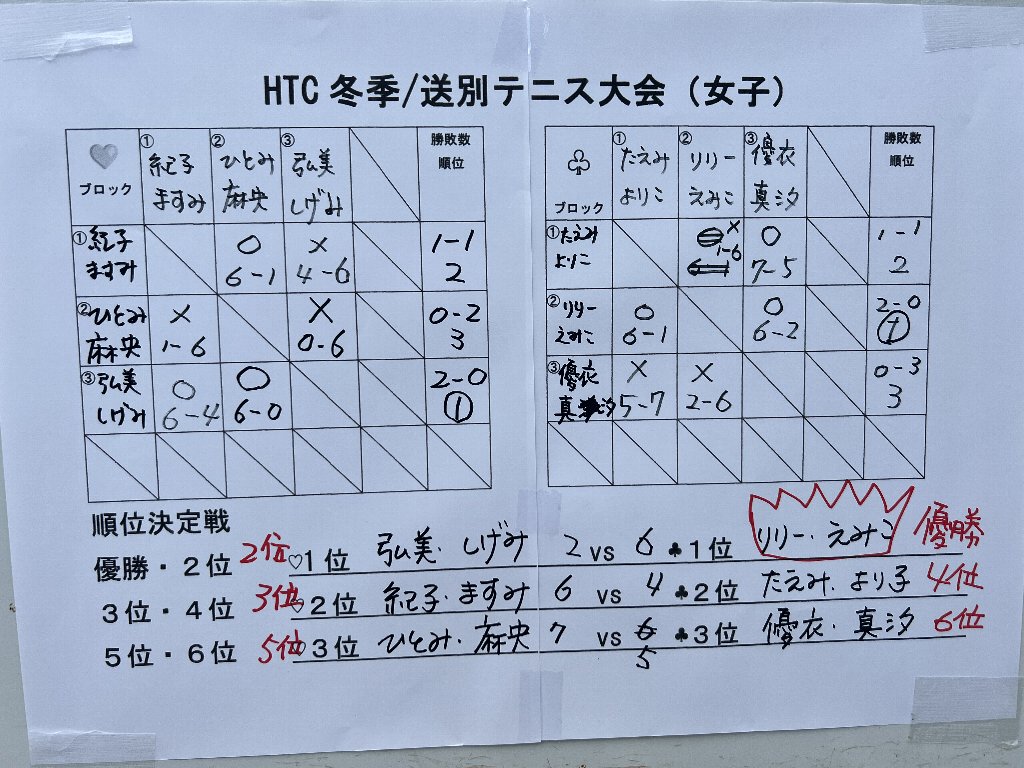 HTC 冬季/送別テニス大会（女子）
♥ ブロック ①紀子 ますみ ②ひとみ 麻央 ③弘美 しげみ 勝敗数 順位
①紀子 ますみ ○ 6-1 × 4-6 1-1 2
②ひとみ 麻央 × 1-6 × 0-6 0-2 3
③弘美 しげみ ○ 6-4 ○ 6-0 2-0 ①
♧ ブロック ①たえみ よりこ ②リリー えみこ ③優衣 真汐 勝敗数 順位
①たえみ よりこ × 1-6 ○ 7-5 1-1 2
②リリー えみこ ○ 6-1 ○ 6-2 2-0 ①
③優衣 真汐 × 5-7 × 2-6 0-3 3
順位決定戦
優勝・2位 2位 ♡1位 弘美・しげみ 2 vs 6 ♣1位 リリー・えみこ 優勝
3位・4位 3位 ♡2位 紀子・ますみ 6 vs 4 ♣2位 たえみ・より子 4位
5位・6位 5位 ♡3位 ひとみ・麻央 7 vs 5 ♣3位 優衣・真汐 6位